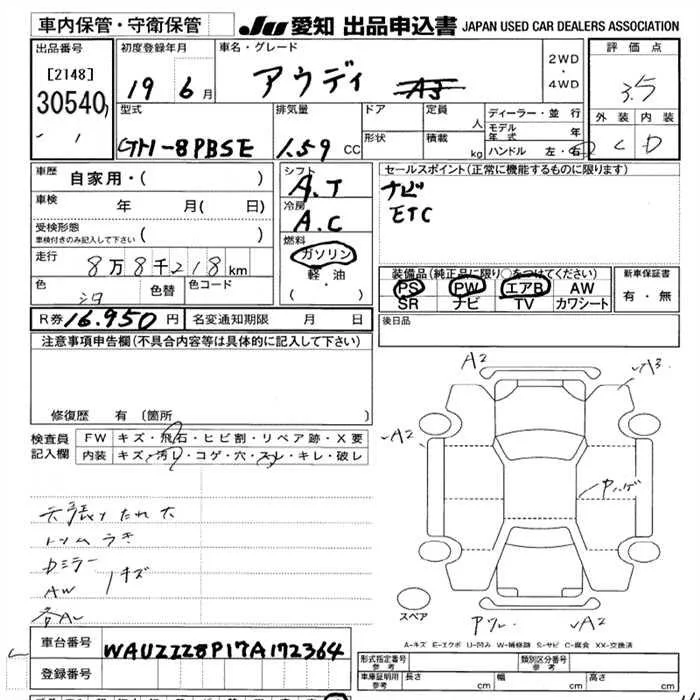 車内保管・守衛保管
JU 愛知 出品申込書 JAPAN USED CAR DEALERS ASSOCIATION
出品番号 初度登録年月 車名・グレード 2WD・4WD 評価点
[2148]
30540
19 6月 アウディ A3 3.5
型式 排気量 ドア 定員 人 ディーラー・並行 外装 内装
モデル年式 年
GH-8PBSE 1.59 CC 形状 積載 kg ハンドル 左・右 C D
車歴 自家用・( )
シフト A.T
セールスポイント(正常に機能するものに限ります)
ナビ
ETC
車検 年 月( 日)
冷房 A.C
受検形態
車検付きのみ記入して下さい ( )
燃料 ガソリン
軽・油
( ・ )
走行 8万8千218km
色 色替 色コード
装備品(純正品に限り○をつけてください) 新車保証書
PS PW エアB AW 有・無
SR ナビ TV カワシート
R券 16.950円 名変通知期限 月 日
後日品
注意事項申告欄(不具合内容等は具体的に記入して下さい)
修復歴 有 〔箇所 〕
検査員記入欄
FW キズ・飛石・ヒビ割・リペア跡・X要
内装 キズ・汚レ・コゲ・穴・スレ・キレ・破レ
天張りたれ大
トリムうき
Dミラー
AW キズ
A2
A3
A2
A2
スペア
A-キズ E-エクボ U-凹み W-補修跡 S-サビ C-腐食 XX-交換済
車台番号 WAUZZZ8P17A172364
登録番号
形式指定番号 参考 類別区分番号 参考
車庫証明用 参考 長さ cm 幅 cm 高さ cm